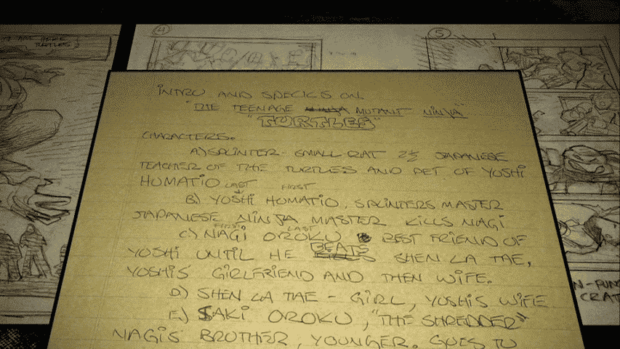 INTRO AND SPECIES ON
"THE TEENAGE MUTANT NINJA"
"TURTLES"
CHARACTERS.
A) SPLINTER - SMALL RAT 2½ JAPANESE
TEACHER OF THE TURTLES AND PET OF YOSHI
HUMATIO LAST FIRST
B) YOSHI HUMATIO, SPLINTERS MASTER
JAPANESE NINJA MASTER KILLS NAGI
C) NAGI OROKU BEST FRIEND OF
YOSHI UNTIL HE BEATS SHEN LA TAE,
YOSHI'S GIRLFRIEND AND THEN WIFE.
D) SHEN LA TAE - GIRL, YOSHI'S WIFE
E) SAKI OROKU, "THE SHREDDER"
NAGI'S BROTHER, YOUNGER. GOES TO